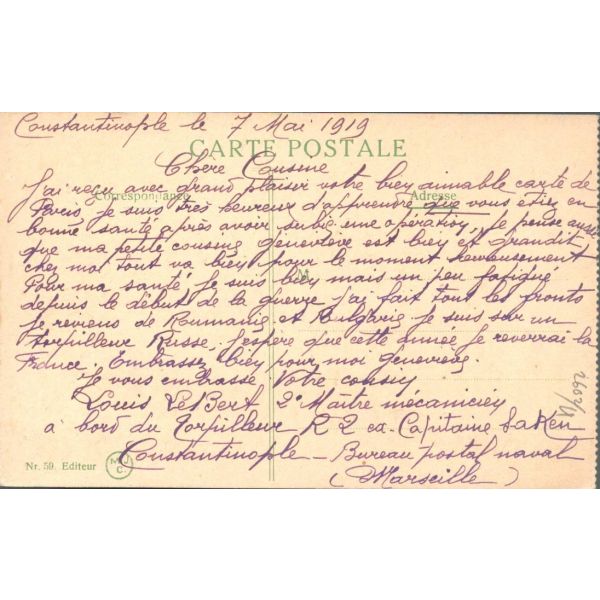 Constantinople le 7 Mai 1919
CARTE POSTALE
Chère Cousine
J'ai reçu avec grand plaisir votre bien aimable carte de
Correspondance
Adresse
Paris, je suis très heureux d'apprendre que vous étiez en
bonne santé après avoir subie une opération, je pense aussi
que ma petite cousine geneviève est bien et grandit
chez moi tout va bien pour le moment heureusement
Pour ma santé je suis bien mais un peu fatigué
depuis le début de la guerre j'ai fait tout les fronts
je reviens de Roumanie et Bulgarie je suis sur un
torpilleur Russe. J'espère que cette année je reverrai la
France. Embrassez bien pour moi Geneviève.
Je vous embrasse Votre cousin
Louis LeBert 2e Maître mécanicien
à bord du Torpilleur R 2 ex-Capitaine Saken
Constantinople - Bureau postal naval
(Marseille)
Nr. 59. Editeur
M J C